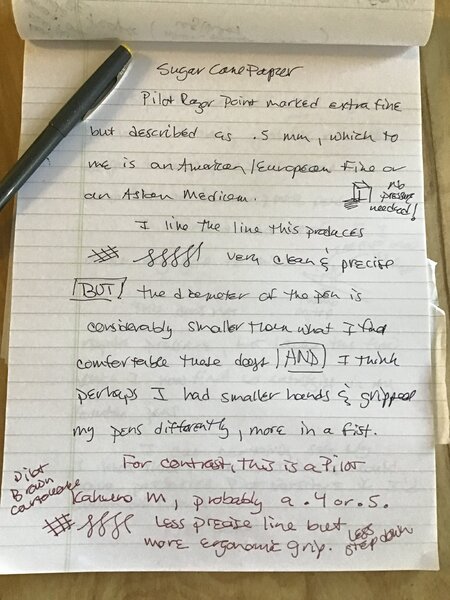 Sugar Cane Paper
Pilot Razor Point marked extra fine
but described as .5 mm, which to
me is an American/European Fine or
an Asian Medium.
no pressure needed!
I like the line this produces
very clean & precise
BUT the diameter of the pen is
considerably smaller than what I find
comfortable these days AND I think
perhaps I had smaller hands & gripped
my pens differently, more in a fist.
For contrast, this is a Pilot
Pilot
Brown
cartridge
Kakuno M, probably a .4 or .5.
Less precise line but
more ergonomic grip.
Less
step down